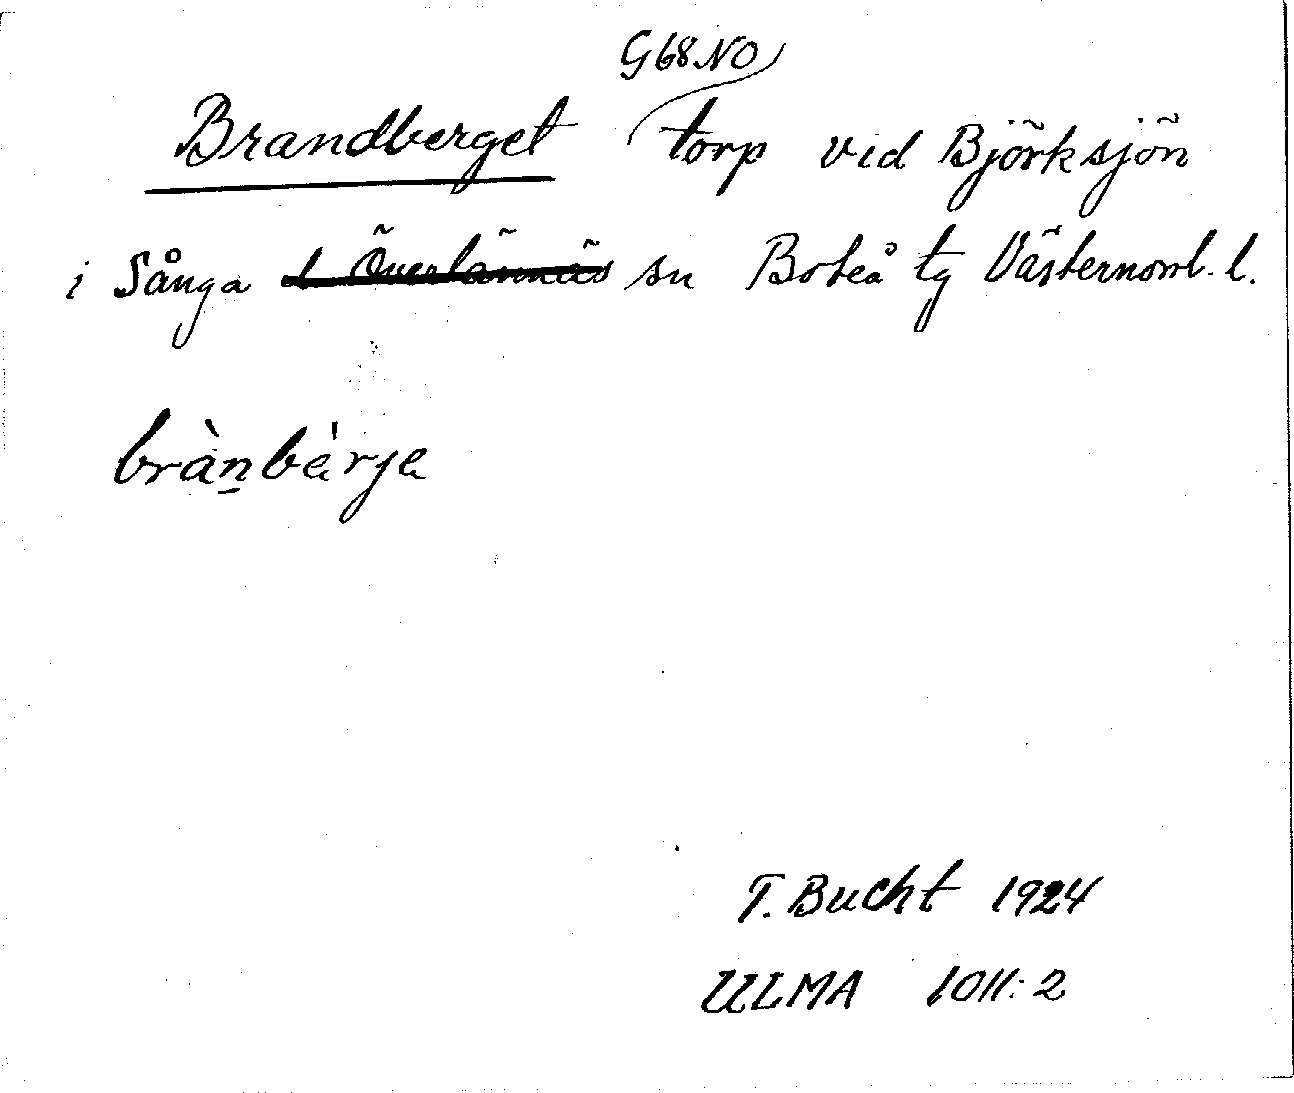 G68NO
Brandberget torp vid Björksjön
i Sånga t Överlännäs sn Boteå tg Västernorrl. l.
brànbèrje
T. Bucht 1924
ULMA 1011:2